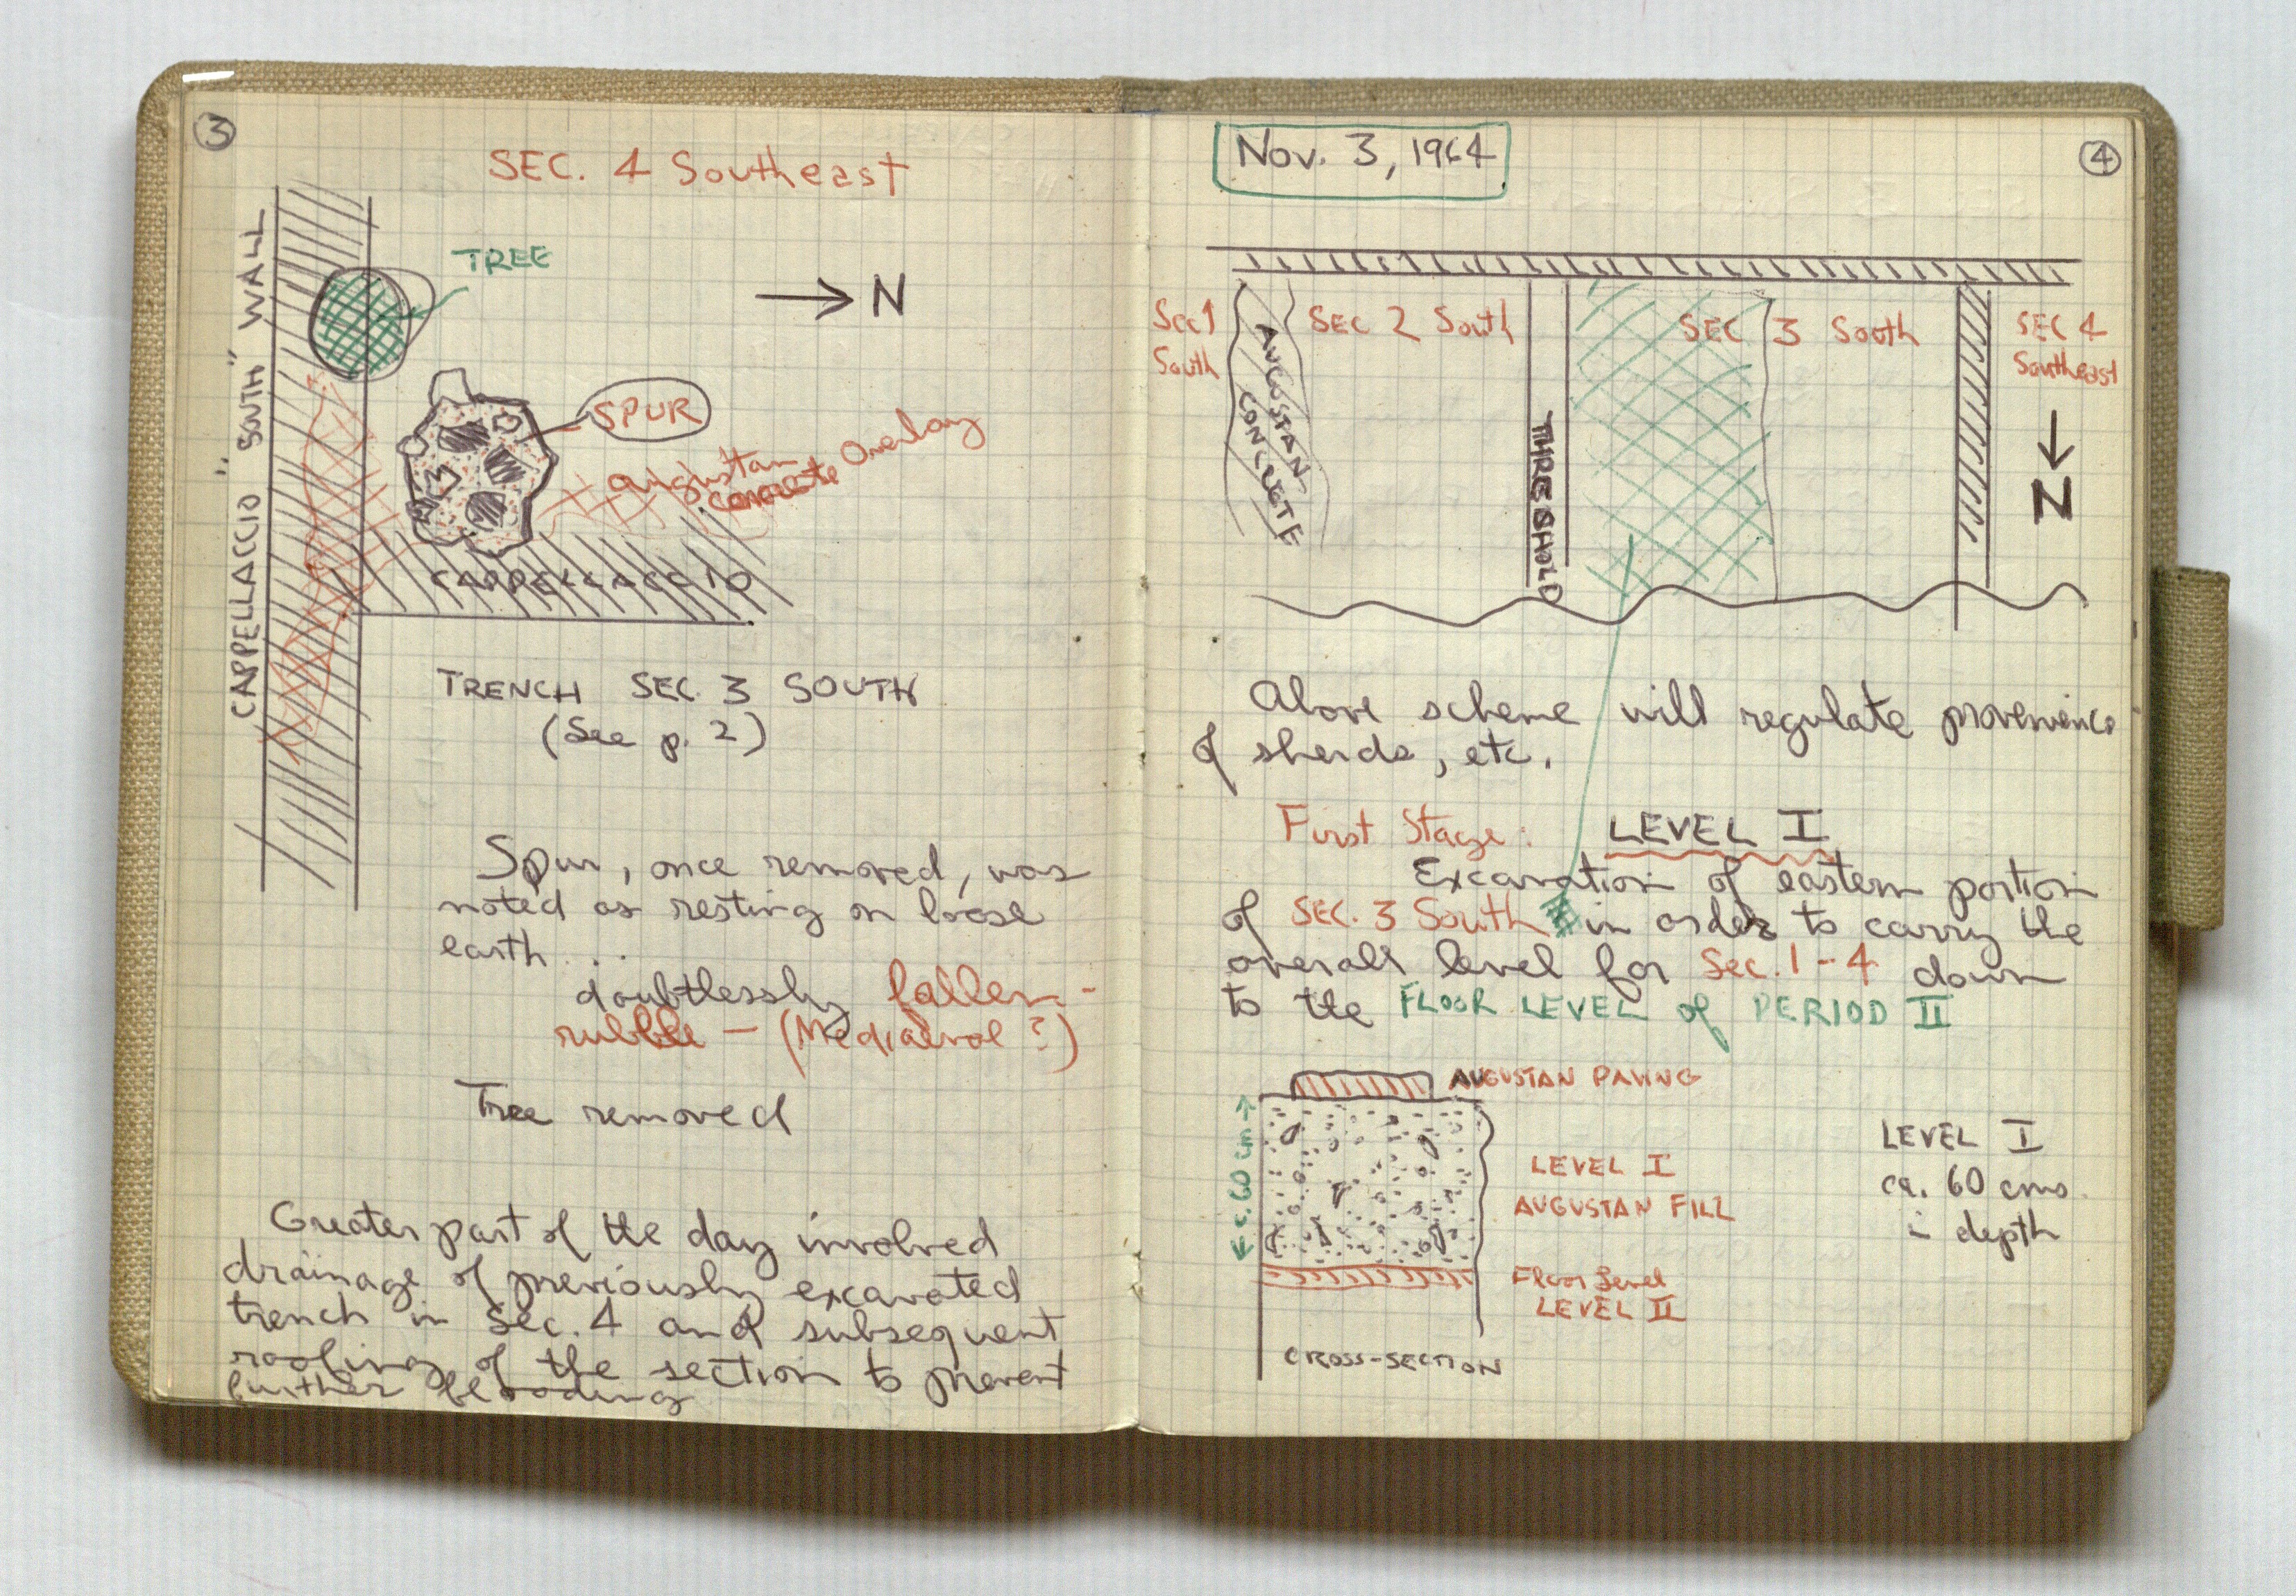 3
SEC. 4 Southeast
CAPPELLACCIO "SOUTH" WALL
TREE
N
SPUR
Augustan
concrete Overlay
CAPPELLACCIO
TRENCH SEC. 3 SOUTH
(See p. 2)
Spur, once removed, was
noted as resting on loose
earth...
doubtlessly fallen-
rubble - (Mediaeval ?)
Tree removed
Greater part of the day involved
drainage of previously excavated
trench in Sec. 4 and subsequent
roofing of the section to prevent
further flooding
Nov. 3, 1964
4
Sec 1
South
AUGUSTAN
CONCRETE
SEC 2 South
THRESHOLD
SEC 3 South
SEC 4
Southeast
N
Above scheme will regulate provenience
of sherds, etc.
First Stage: LEVEL I
Excavation of eastern portion
of SEC. 3 South in order to carry the
overall level for Sec. 1-4 down
to the FLOOR LEVEL of PERIOD II
AUGUSTAN PAVING
c. 60 cm
LEVEL I
AUGUSTAN FILL
Floor Level
LEVEL II
CROSS-SECTION
LEVEL I
ca. 60 cms
in depth